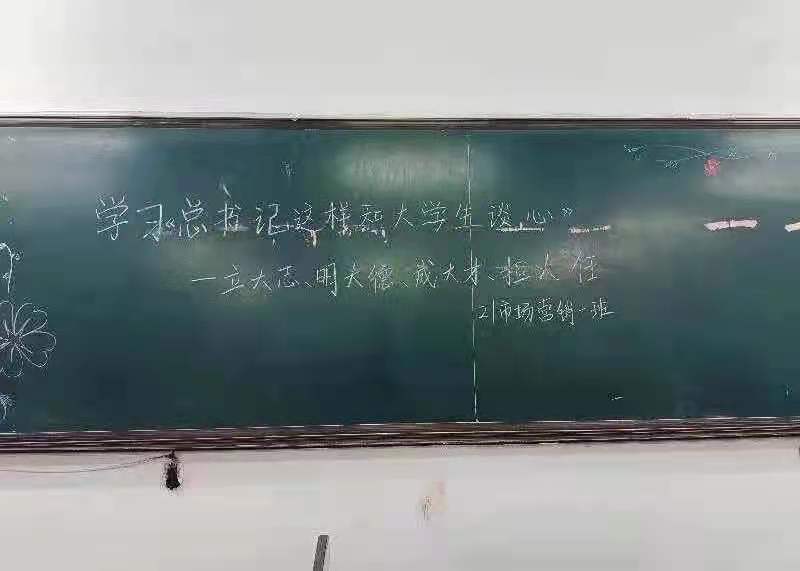 学习《总书记这样和大学生谈心》
—立大志、明大德、成大才、担大任
21市场营销一班